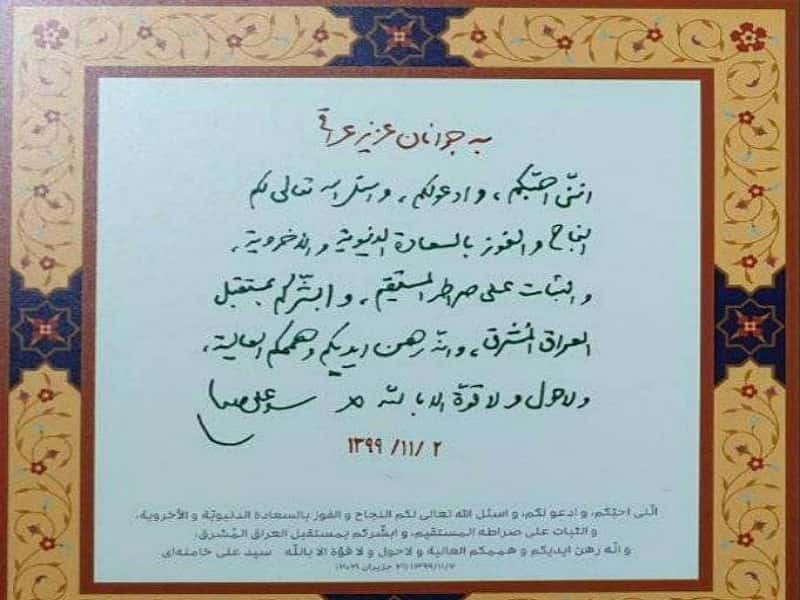 به جوانان عزیز عراق
انّنی احبّکم، و ادعو لکم، و اسئل الله تعالی لکم
النجاح و الفوز بالسعادة الدنیویة و الأخرویة،
و الثبات علی صراطه المستقیم، و ابشّرکم بمستقبل
العراق المُشرق، و انّه رهن ایدیکم و هممکم العالیة،
و لا حول و لا قوّة الا بالله سید علی خامنه‌ای
۱۳۹۹/۱۱/۲
انّنی احبّکم، و ادعو لکم، و اسئل الله تعالی لکم النجاح و الفوز بالسعادة الدنیویّة و الأخرویة،
و الثبات علی صراطه المستقیم، و ابشّرکم بمستقبل العراق المُشرق،
و انّه رهن ایدیکم و هممکم العالیة و لاحول و لا قوّة الا بالله سید علی خامنه‌ای